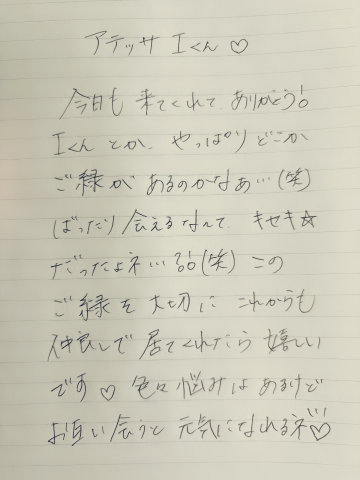 アテッサ Iくん ♡
今日も 来てくれて ありがとう!
Iくん とか、やっぱり どこか
ご縁が あるのかなぁ…(笑)
ばったり 会えるなんて キセキ☆
だったよネ…!(笑) この
ご縁を 大切に これからも
仲良しで 居てくれたら 嬉しい
です♡ 色々 悩みは あるけど
お互い 会うと 元気になれるネ♡